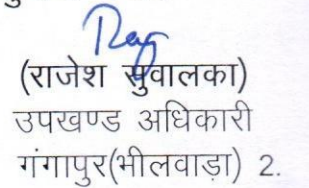 (राजेश सुवालका)
उपखण्ड अधिकारी
गंगापुर(भीलवाड़ा) 2.